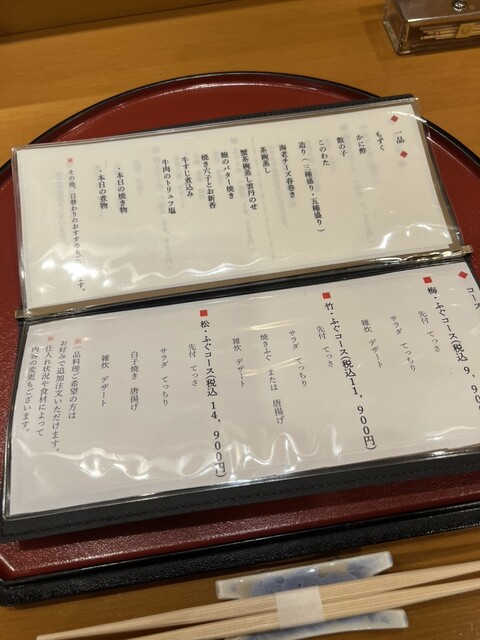 ◆一品◆
もずく
かに酢
数の子
このわた
造り(三種盛り・五種盛り)
海老チーズ春巻き
茶碗蒸し
蟹茶碗蒸し雲丹のせ
鮑のバター焼き
焼き穴子とお新香
牛すじ煮込み
牛肉のトリュフ塩
・本日の焼き物
・本日の煮物
※その他、日替わりのおすすめもございます。
◆コース
■梅・ふぐコース(税込 9,900円)
先付 てっさ
サラダ てっちり
雑炊 デザート
■竹・ふぐコース(税込11,900円)
先付 てっさ
サラダ てっちり
焼きふぐ または 唐揚げ
雑炊 デザート
■松・ふぐコース(税込 14,900円)
先付 てっさ
サラダ てっちり
白子焼き 唐揚げ
雑炊 デザート
※一品料理ご希望の方は
お好みで追加注文いただけます。
※仕入れ状況や食材によって
内容の変更もございます。